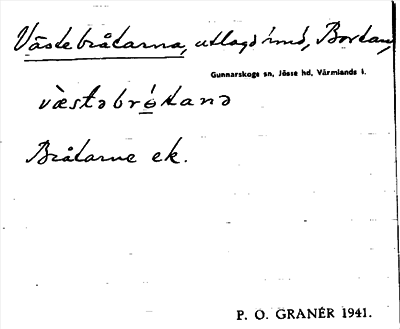 Västebråtarna, utlagd inmd, Bortan,
Gunnarskogs sn, Jösse hd, Värmlands l.
væstəbrótanə
Bråtarne ek.
P. O. GRANÉR 1941.